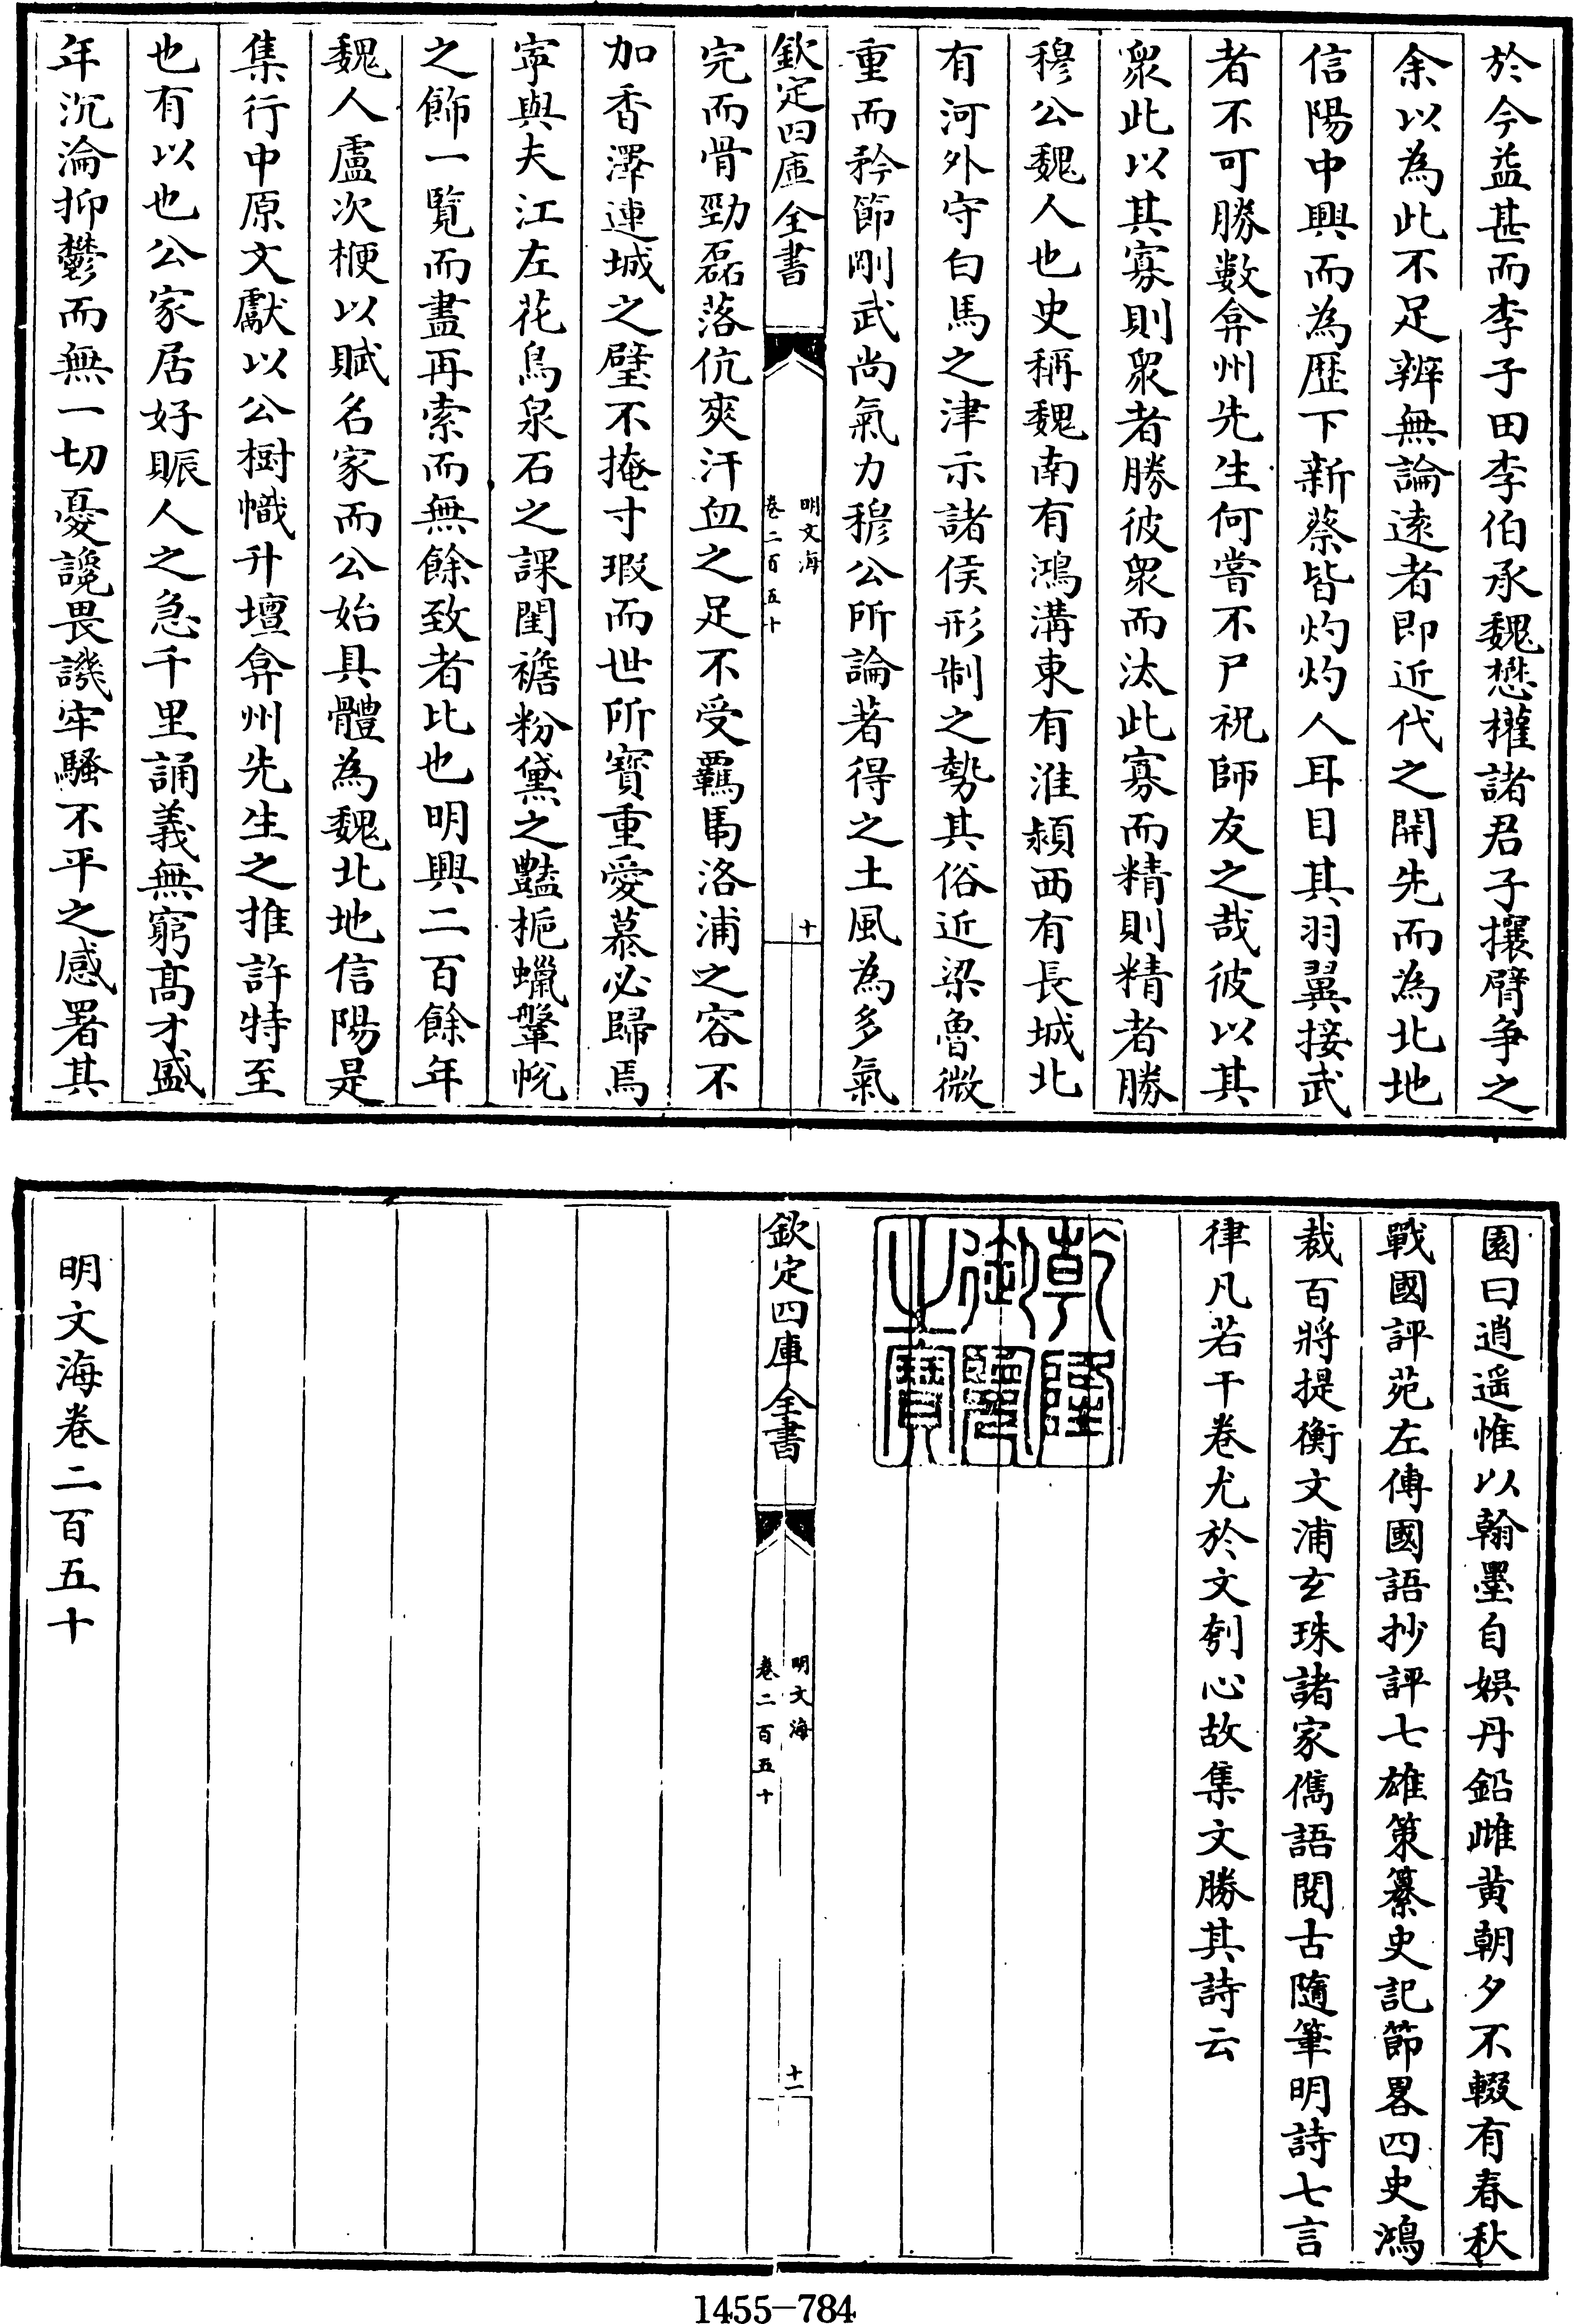 於今益甚而李子田李伯承魏懋權諸君子攘臂争之
余以為此不足辨無論遠者即近代之開先而為北地
信陽中興而為歷下新蔡皆灼灼人耳目其羽翼接武
者不可勝數弇州先生何嘗不尸祝師友之哉彼以其
衆此以其寡則衆者勝彼衆而汰此寡而精則精者勝
穆公魏人也史稱魏南有鴻溝東有淮潁西有長城北
有河外守白馬之津示諸侯形制之勢其俗近梁魯微
重而矜節剛武尚氣力穆公所論著得之土風為多氣
欽定四庫全書
明文海
卷二百五十
十
完而骨勁磊落伉爽汗血之足不受羈馬洛浦之容不
加香澤連城之璧不掩寸瑕而世所寶重愛慕必歸焉
寜與夫江左花鳥泉石之課閨襜粉黛之豔梔蠟鞶帨
之飾一覽而盡再索而無餘致者比也明興二百餘年
魏人盧次楩以賦名家而公始具體為魏北地信陽是
集行中原文獻以公樹幟升壇弇州先生之推許特至
也有以也公家居好賑人之急千里誦義無窮髙才盛
年沉淪抑鬱而無一切憂讒畏譏牢騷不平之感署其
園曰逍遥惟以翰墨自娱丹鉛雌黄朝夕不輟有春秋
戰國評苑左傳國語抄評七雄策纂史記節畧四史鴻
裁百將提衡文浦玄珠諸家儁語閱古隨筆明詩七言
律凡若干卷尤於文刳心故集文勝其詩云
乾隆御覽之寶
欽定四庫全書
明文海
卷二百五十
十一
明文海卷二百五十
1455-784